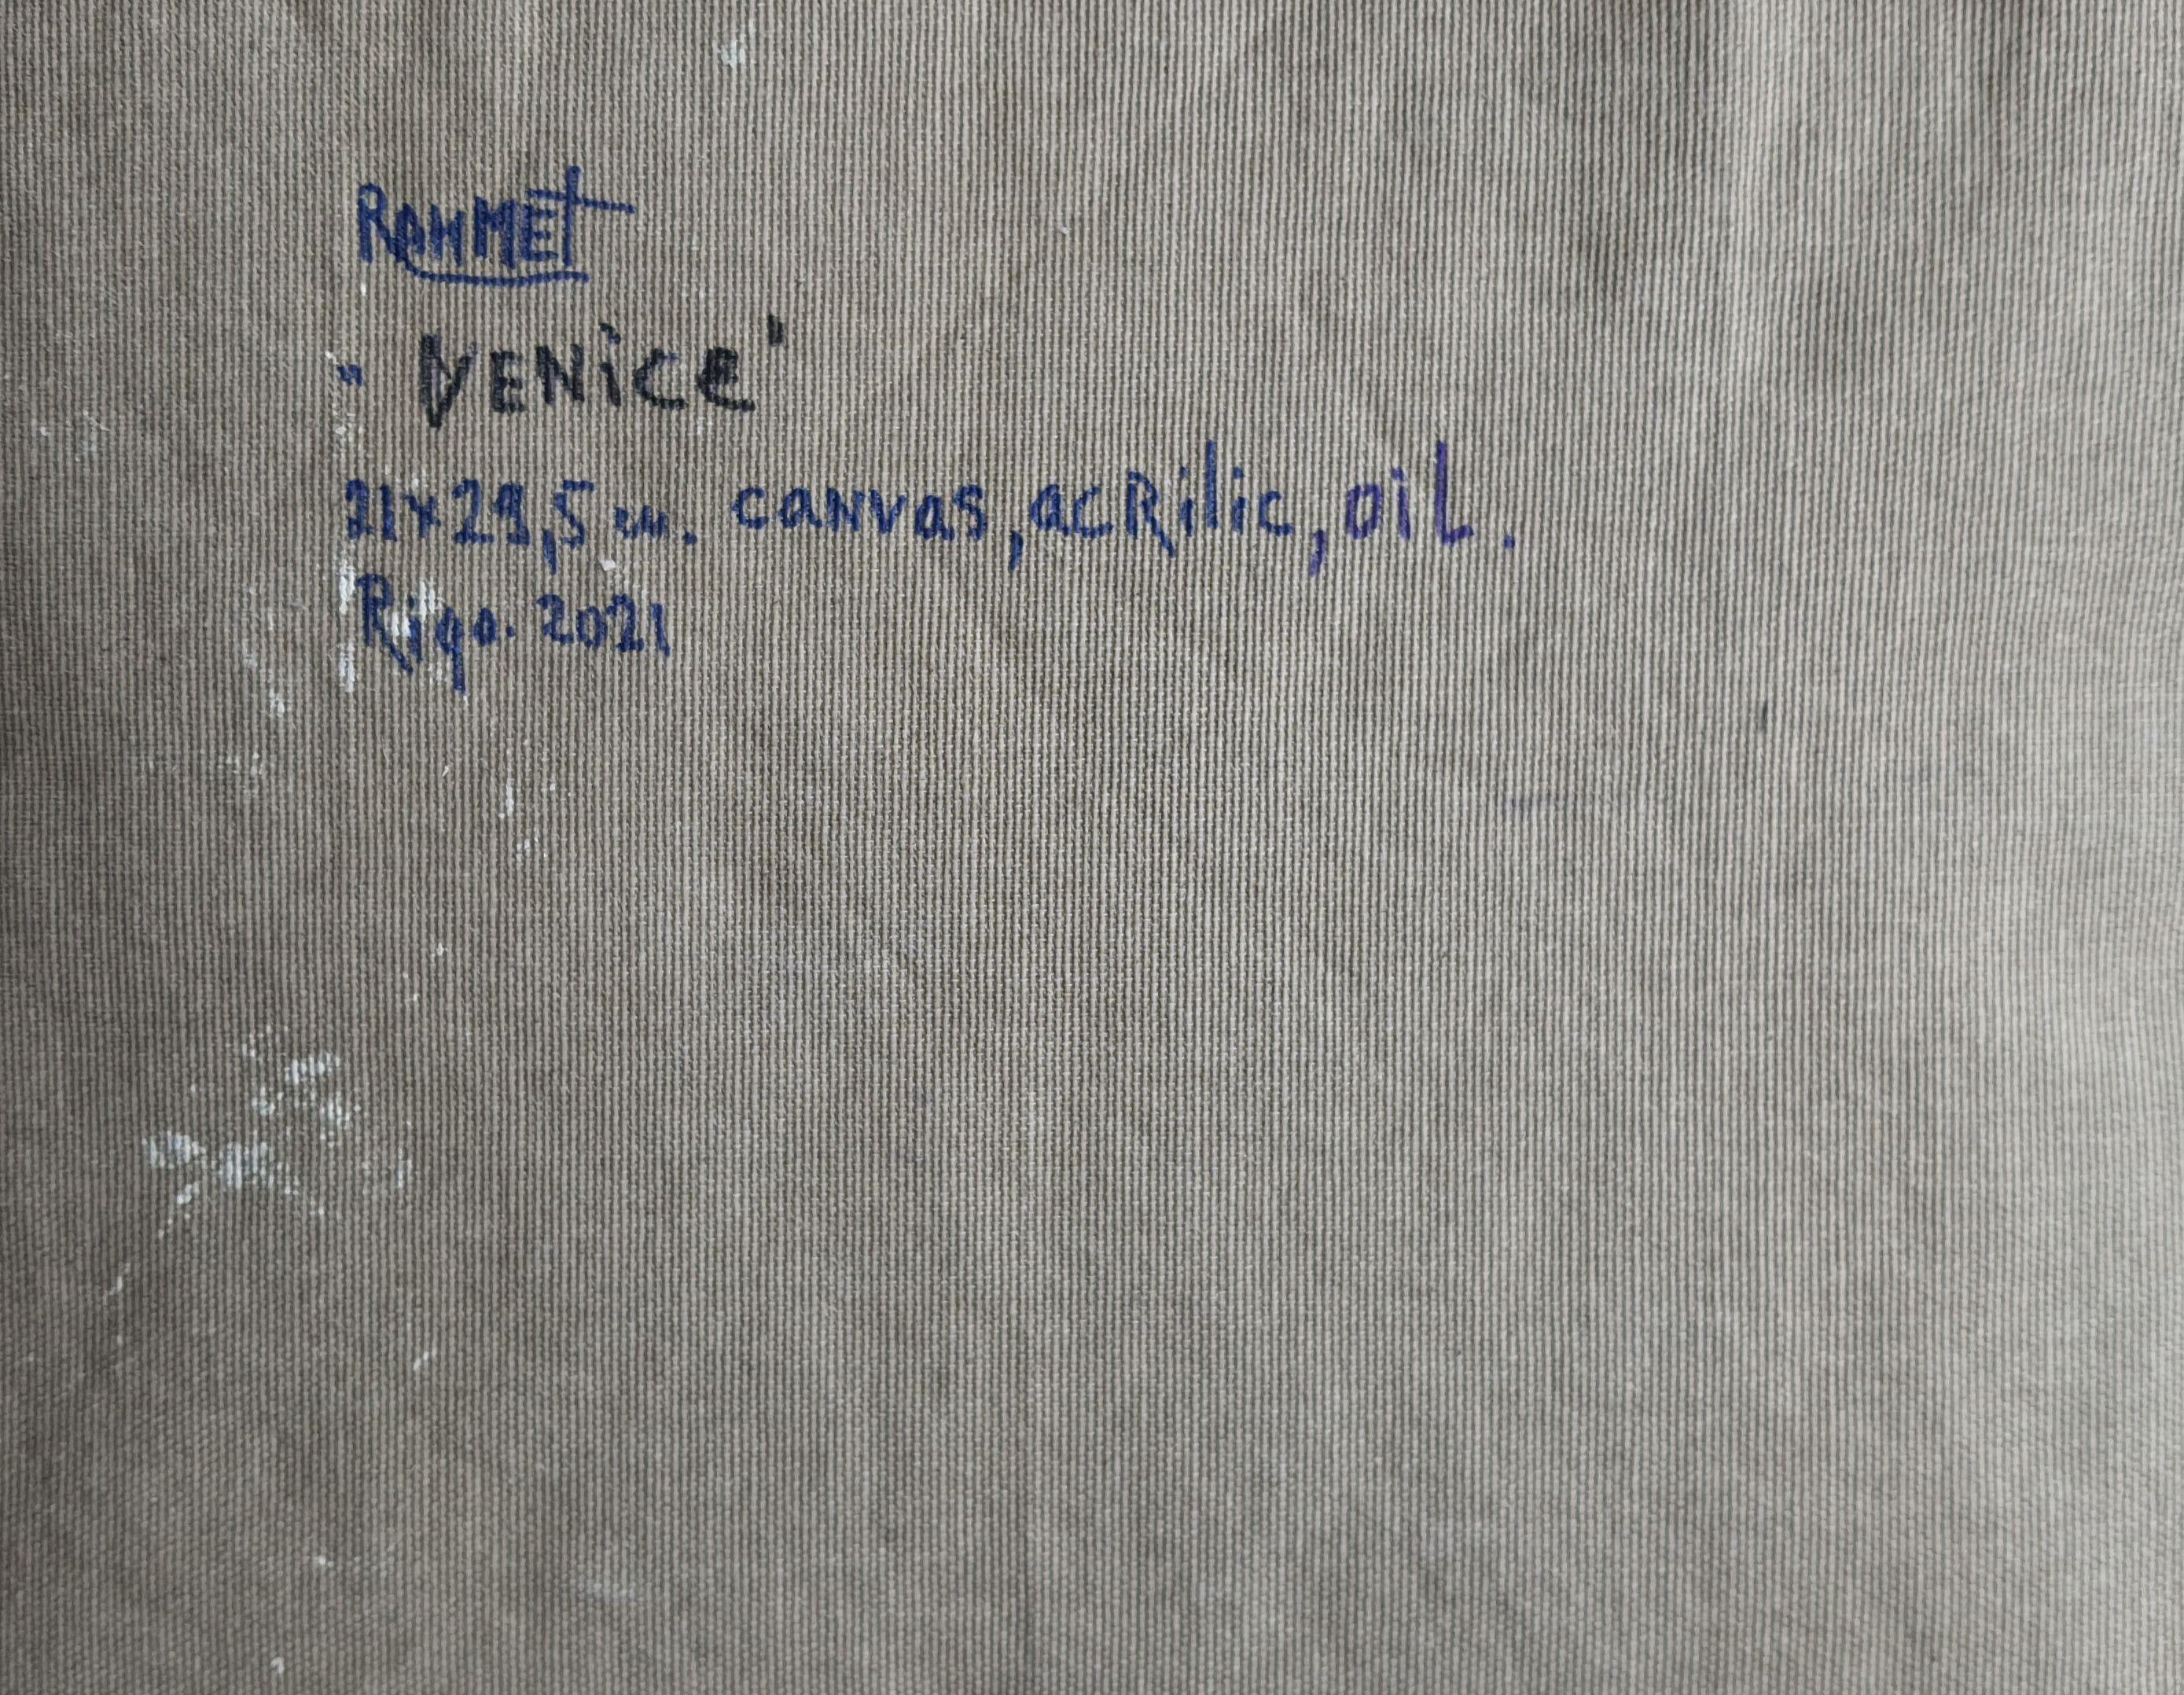 RAHMET
" VENiCe '
21x29,5 cm. canvas, acRilic, oiL.
Riga. 2021